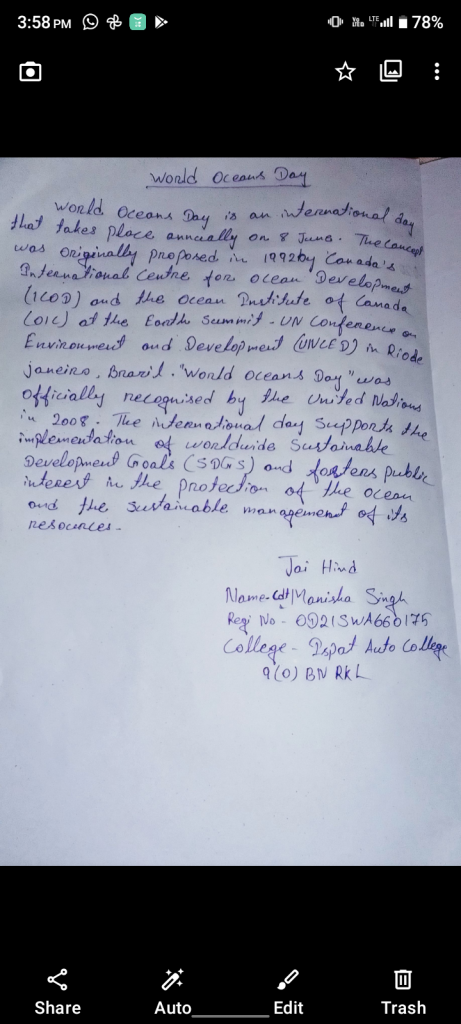 3:58 PM
Yo LTE 78%
World Oceans Day
World Oceans Day is an international day
that takes place annually on 8 June. The concept
was originally proposed in 1992 by Canada's
International Centre for Ocean Development
(ICOD) and the Ocean Institute of Canada
(OIC) at the Earth Summit - UN Conference on
Environment and Development (UNCED) in Rio de
janeiro, Brazil. "World Oceans Day" was
officially recognised by the United Nations
in 2008. The international day supports the
implementation of worldwide Sustainable
Development Goals (SDGS) and fosters public
interest in the protection of the ocean
and the sustainable management of its
resources.
Jai Hind
Name - Cdt Manisha Singh
Regi No - OD21SWA660175
College - Ispat Auto College
9(O) BN RKL
Share Auto Edit Trash